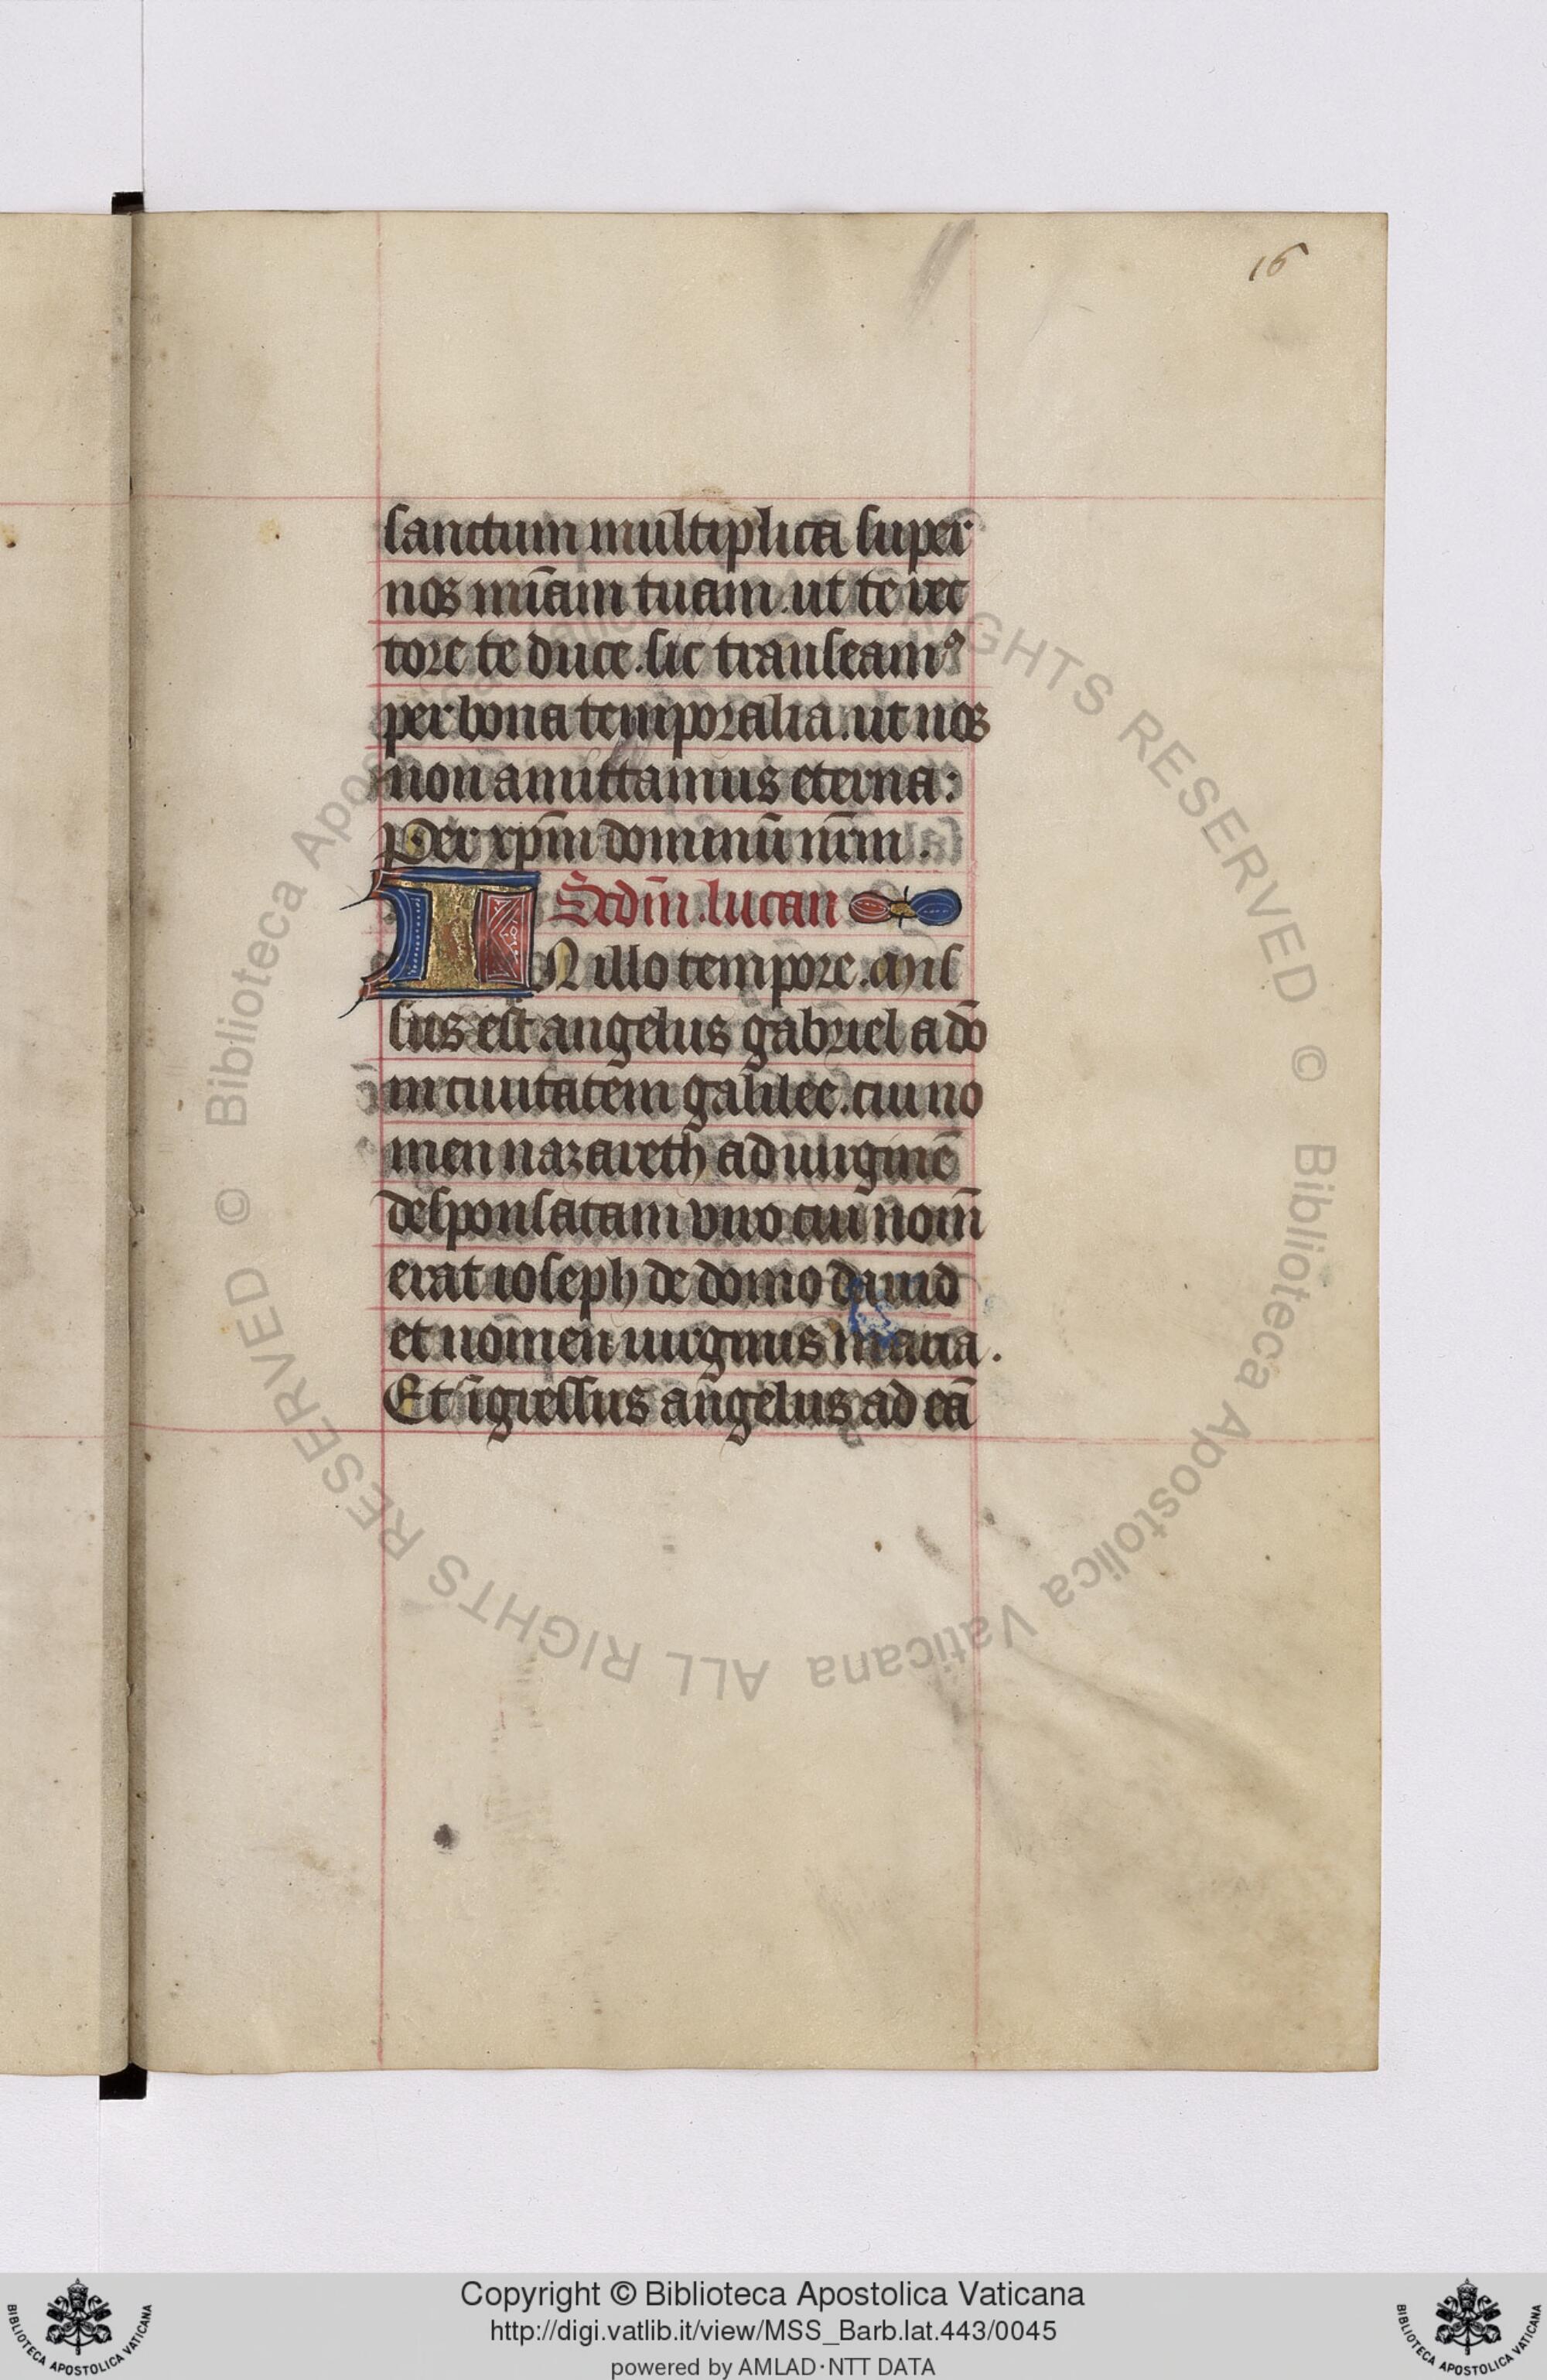 16
sanctum multiplica super
nos mīam tuam. ut te rec
tore te duce. sic transeamꝰ
per bona temporalia. ut nos
non amittamus eterna:
Per xp̄m dominū nr̄m.
Scdm̄. lucan
IN illo tempore. Mis
sus est angelus gabriel a dō
in ciuitatem galilee. cui no
men nazareth ad uirginē
desponsatam viro cui nom̄
erat ioseph de domo dauid
et nomen uirginis maria.
Et īgressus angelus ad eā
© Biblioteca Apostolica Vaticana ALL RIGHTS RESERVED © Biblioteca Apostolica Vaticana ALL RIGHTS RESERVED
Copyright © Biblioteca Apostolica Vaticana
http://digi.vatlib.it/view/MSS_Barb.lat.443/0045
powered by AMLAD·NTT DATA
BIBLIOTECA APOSTOLICA VATICANA
BIBLIOTECA APOSTOLICA VATICANA